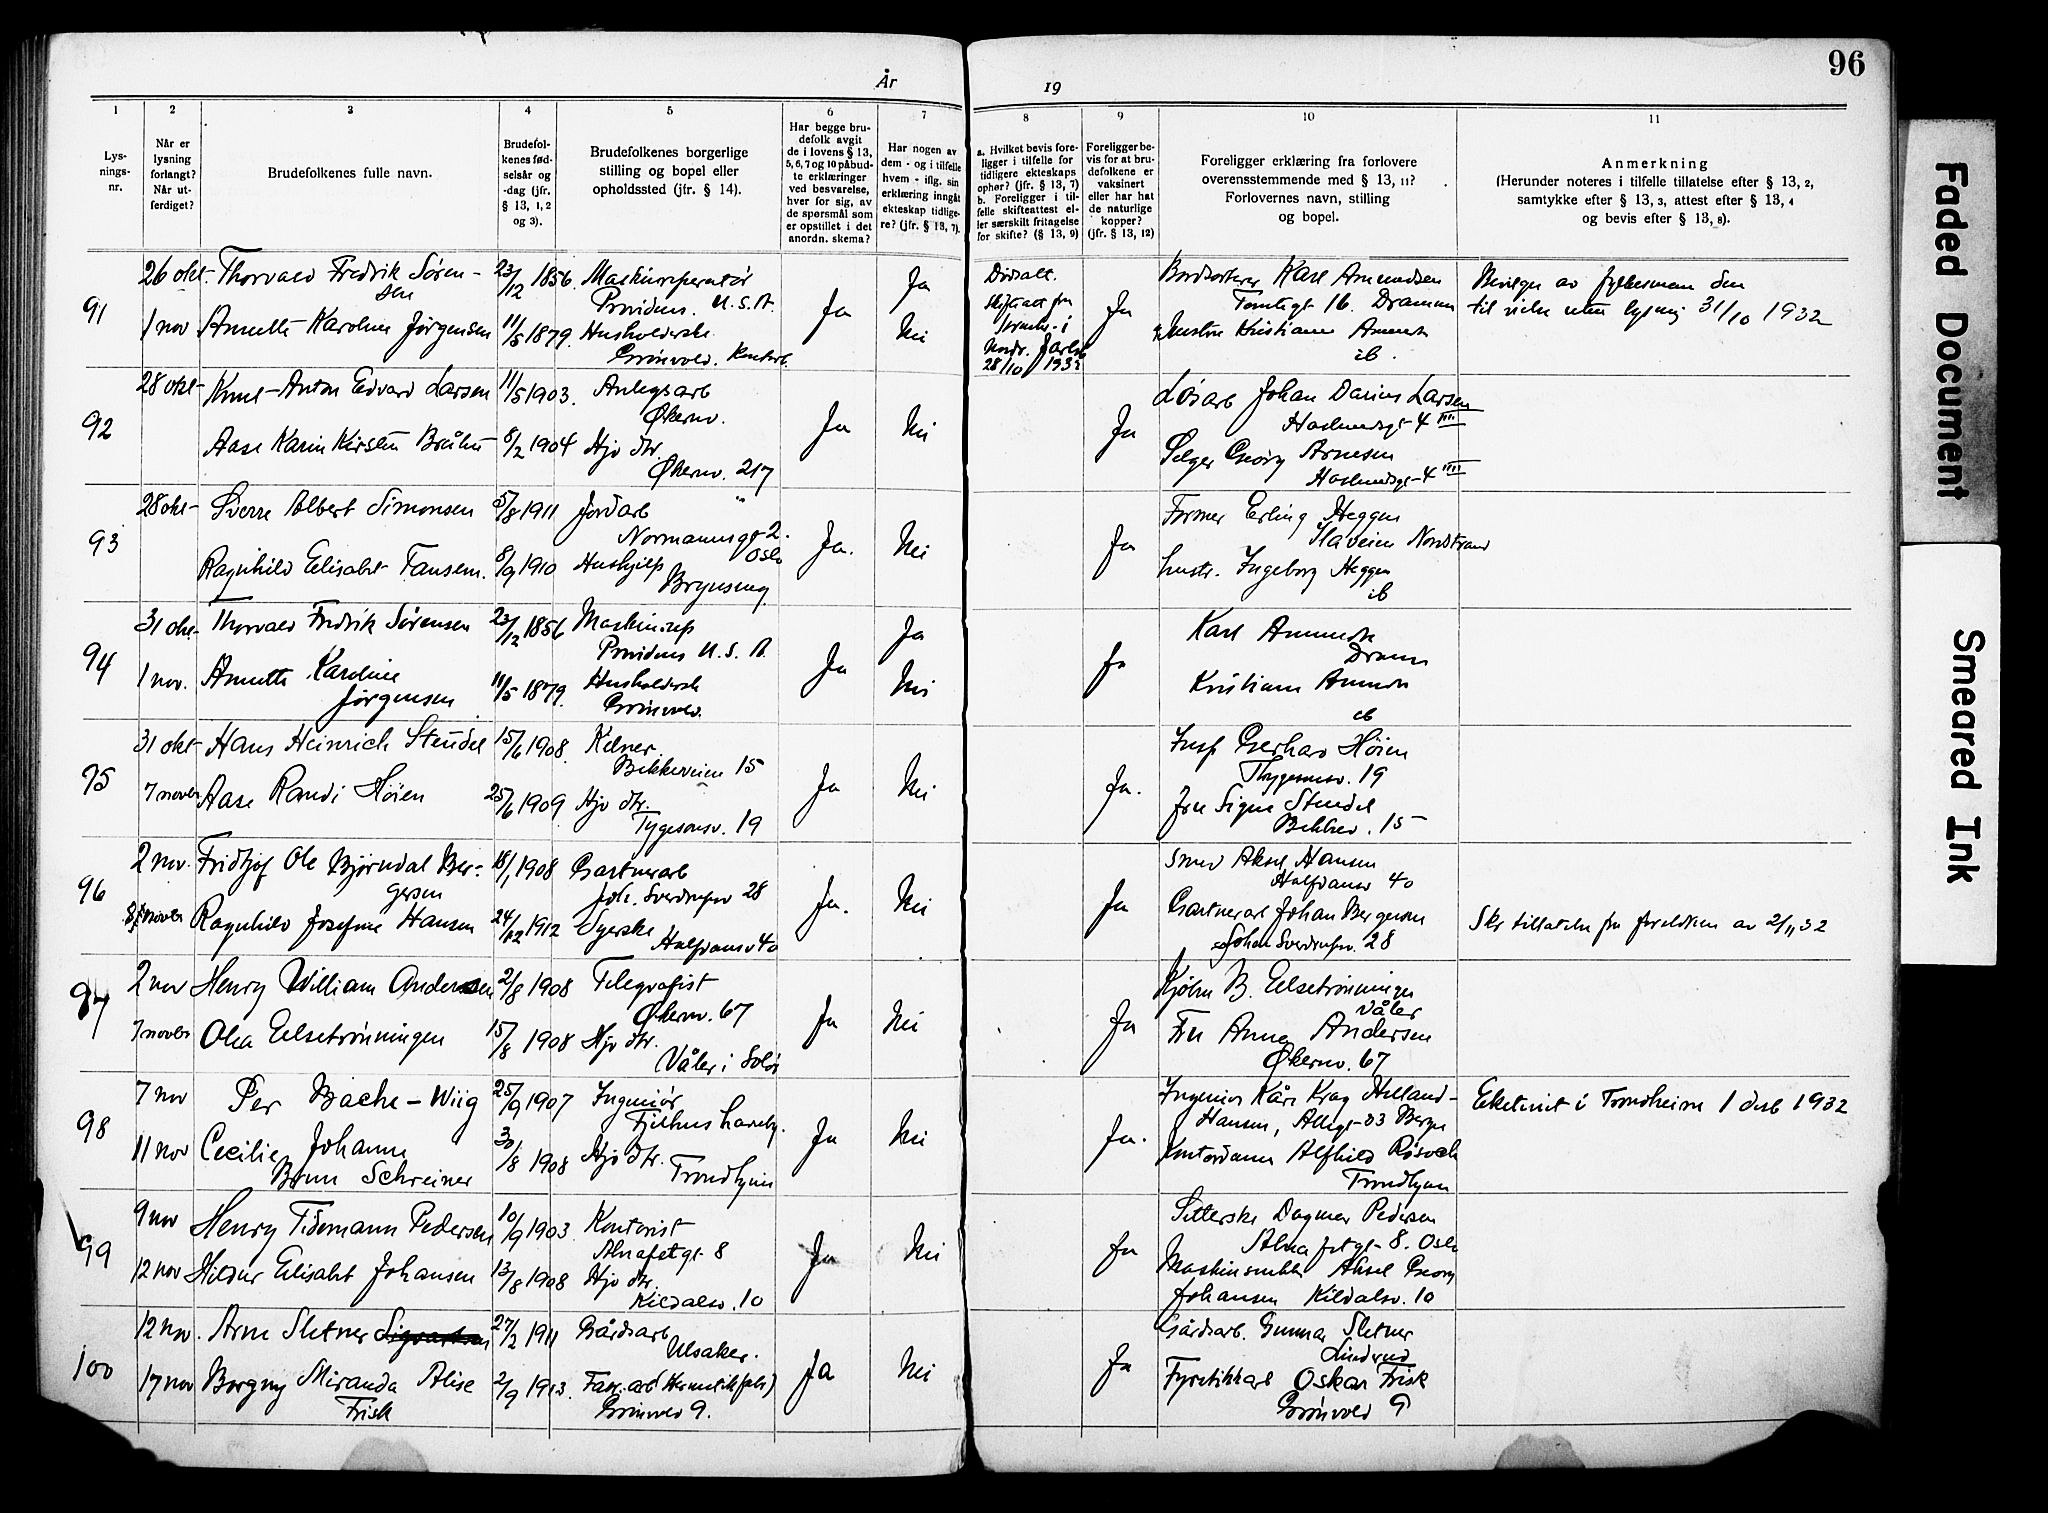 96
År
19
1 2 3 4 5 6 7 8 9 10 11
Lys-
nings-
nr.
Når er
lysning
forlangt?
Når ut-
ferdiget?
Brudefolkenes fulle navn.
Brudefol-
kenes fød-
selsår og
-dag (jfr.
§ 13, 1, 2
og 3).
Brudefolkenes borgerlige
stilling og bopel eller
opholdssted (jfr. § 14).
Har begge bru-
defolk avgit
de i lovens § 13,
5, 6, 7 og 10 påbud-
te erklæringer
ved besvarelse,
hver for sig, av
de spørsmål som
er opstillet i det
anordn. skema?
Har nogen av
dem - og i tilfelle
hvem - iflg. sin
erklæring inngåt
ekteskap tidlige-
re? (jfr. § 13, 7).
a. Hvilket bevis fore-
ligger i tilfelle for
tidligere ekteskaps
ophør? (jfr. § 13, 7)
b. Foreligger i til-
felle skifteattest el-
ler særskilt fritagelse
for skifte? (§ 13, 9)
Foreligger be-
vis for at bru-
defolkene er
vaksinert
eller har hat
de naturlige
kopper?
(jfr. § 13, 12)
Foreligger erklæring fra forlovere
overensstemmende med § 13, 11?
Forlovernes navn, stilling
og bopel.
Anmerkning
(Herunder noteres i tilfelle tillatelse efter § 13, 2,
samtykke efter § 13, 3, attest efter § 13, 4
og bevis efter § 13, 8).
91
26 okt- Thorvald Fredrik Søren-
sen
23/12 1856. Maskinreperatør
Providens. U.S.A.
1 nov Annette Karoline Jørgensen 11/5 1879. Husholderske
Grønvold.
Ja
Ja
Nei
Dødsatt.
28/10 1932
Ja
Karl Amundsen
Tomtegt 16. Drammen
Kristiane Amunds
ib.
Bevilgn av fylkesmann den
til vielse uten lysning 31/10 1932
92
28 okt- Knut-Anton Edvard Larsen 11/5 1903. Anlegsarb
Økernv.
Aase Karin Kirsten Bråten 8/2 1904 Hjv dtr.
Økernv. 217
Ja
Nei
Ja
Løsarb Johan Darius Larsen
4 IIII
Selger Georg Arnesen
4 IIII
93
28 okt- Sverre Albert Simonsen 5/8 1911 Jordarb "
Normannsgt 2.
Oslo
Ragnhild Elisabet Fansem. 8/9 1910 Hushjelp
Brynseng
Ja.
Nei
Ja
Former Erling Heggen
Nordstrand
hustr. Ingeborg Heggen
ib
94
31 okt- Thorvald Fredrik Sørensen 23/12 1856 Maskinrep
Providens U.S.A.
1 nov. Annette Karoline
Jørgensen
11/5 1879. Husholdersk
Grønvold.
Ja
Ja
Nei
Ja
Karl Amunds
Dramm
Kristiane Amunds
ib
95
31 okt- Hans Heinrich Steudel 15/6 1908. Kelner.
Bekkeveien 15
7 novbr Aase Randi Høien 25/6 1909 Hjv dtr.
Tygesonsv. 19
Ja
Nei
Ja.
Insp Gerhard Høien
Thygesensv. 19
Fru Signe Steudel
Bekkev. 15
96
2 nov. Fridtjof Ole Bjørndal Ber-
gersen
18/1 1908 Gartnerarb
Joh. Sverdrupsv 28
8/novbr Ragnhild Josefine Hansen 24/12 1912 Syerske
Halfdansv 40
Ja.
Nei
Ja
Smed Aksel Hansen
Halfdansv 40
Gartnerarb Johan Bergersen
Johan Sverdrupsv. 28
Skr tillatelse fra foreldrene av 2/11 32
97
2 nov Henry William Andersen 2/8 1908 Telegrafist
Økernv. 67
7 novbr Olea Eelsetrønningen 15/8 1908 Hjv dtr.
Våler i Solør
Ja
Nei
Ja
B. Eelsetrønningen
Våler
Fru Anna Andersen
Økernv. 67
98
7 nov Per Bache-Wiig 25/9 1907 Ingeniør
Fjelhus
11 nov Cecilie Johanne
Brun Schreiner
30/8 1908 Hjv dtr.
Trondhjem
Ja
Nei
Ja.
Ingeniør Kåre Krag Helland-
Hansen, Allegt-33 Bergen
Kontordame Alfhild
Trondhjem
Ektevied i Trondheim 1 desb 1932
99
9 nov Henry Tidemann Pedersen 10/9 1903. Kontorist
Alnafetgt 8
12 nov Hildur Elisabet Johansen 13/8 1908 Hjv dtr.
Kildalsv. 10
Ja
Nei
Ja
Setterske Dagmar Pedersen
Alnafetgt- 8. Oslo
Maskinsnekk Aksel Georg
Johansen Kildalsv. 10
100
12 nov. Arne Sletner 27/2 1911 Gårdsarb
Ulsaker.
17 nov Borgny Miranda Alise
Frisk
2/9 1913. Fabr. arb (Hermetikfabr)
Grønvold 9.
Ja
Nei
Ja
Gårdsarb. Gunnar Sletner
Linderud
Fyrstikkarb Oskar Frisk
Grønvold 9
Faded Document
Smeared Ink